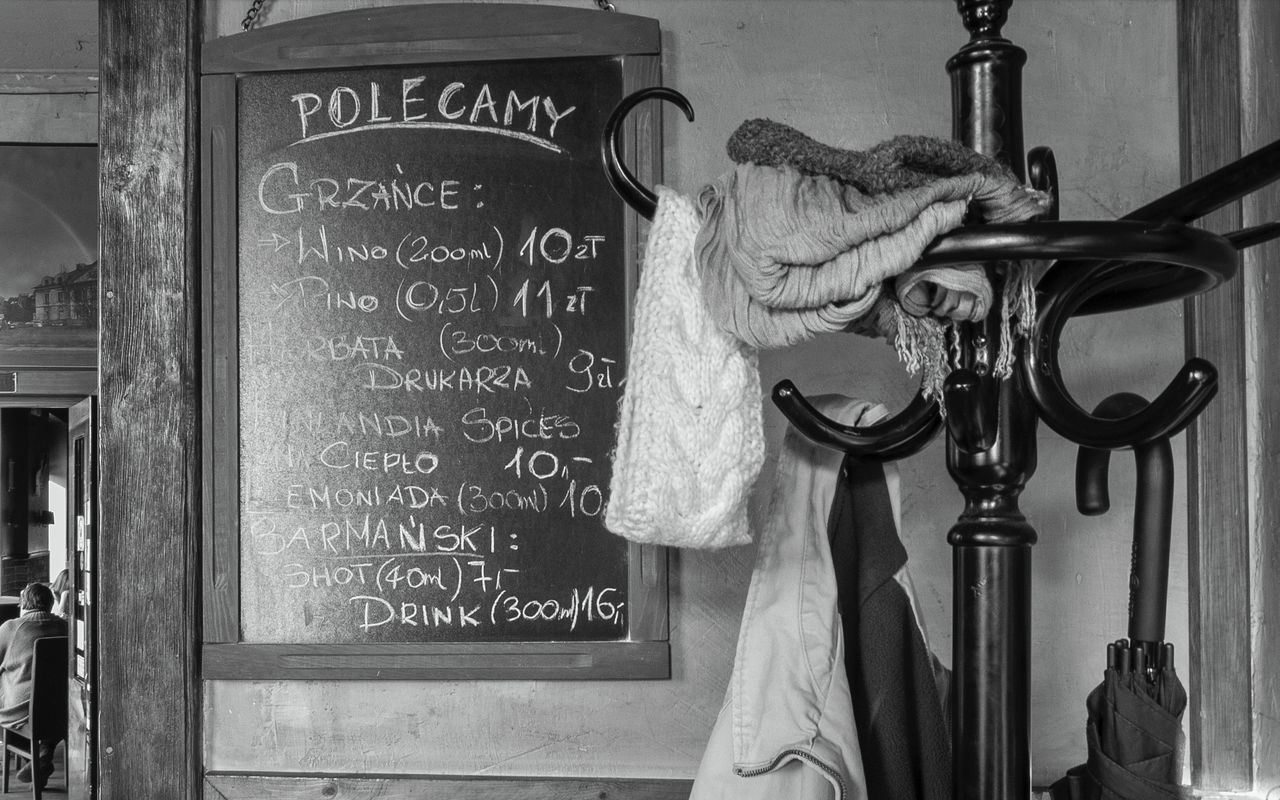 POLECAMY
GRZAŃCE:
→ WINO (200ml) 10 zł
PIWO (0,5l) 11 zł
(300ml)
DRUKARZA 9 zł
SPICES
CIEPŁO 10,-
LEMONIADA (300ml) 10
BARMAŃSKI:
SHOT (40ml) 7,-
DRINK (300ml) 16,-